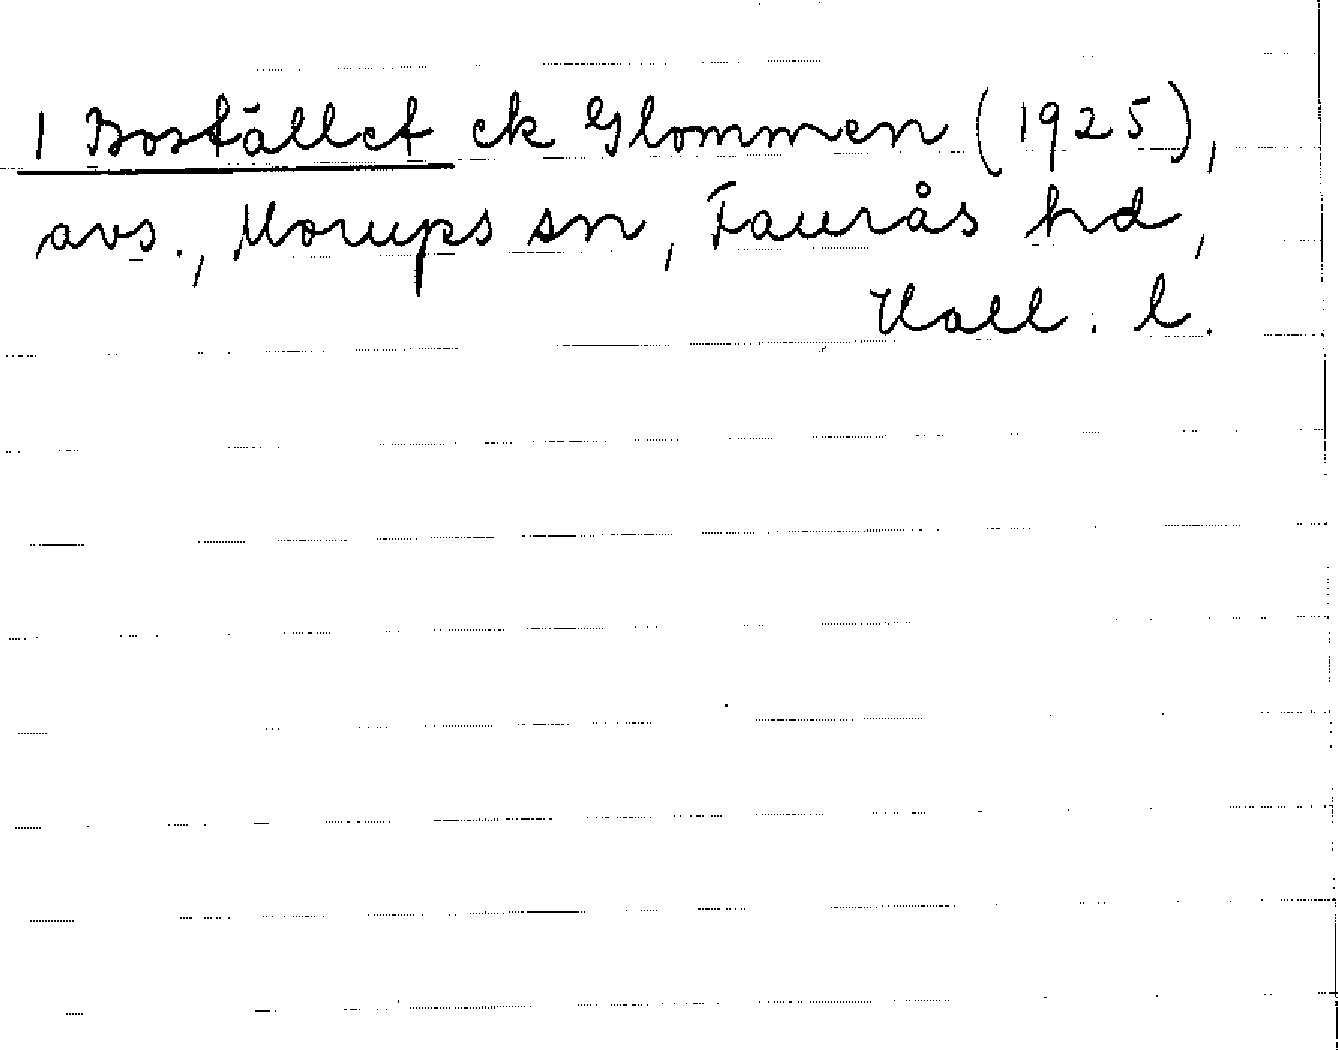 1 Bostället ek Glommen (1925),
avs., Morups sn, Faurås hd,
Hall. l.